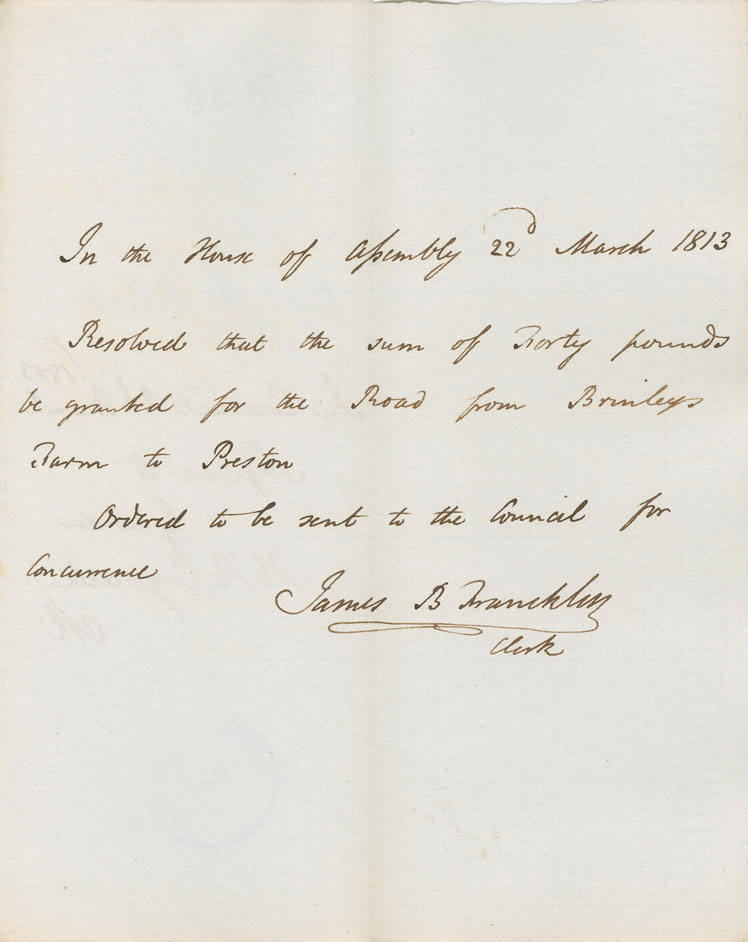 In the House of Assembly 22d March 1813
Resolved that the sum of Forty pounds
be granted for the Road from Brinleys
Farm to Preston
Ordered to be sent to the Council for
Concurrence
James B Franckley
Clerk